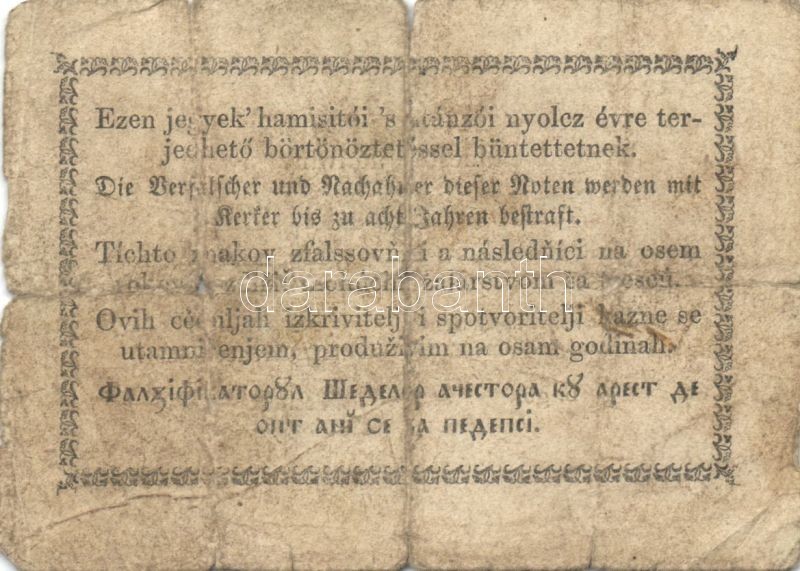 Ezen jegyek' hamisitói 's utánzói nyolcz évre ter-
jedhető börtönöztetéssel büntettetnek.
Die Verfälscher und Nachahmer dieser Noten werden mit
Kerker bis zu acht Jahren bestraft.
Tíchto znakov zfalssovňíci a následňíci na osem
žalárstvom sa
darabanth
Ovih cèduljah izkrivitelji i spotvoritelji kazne se
utamničenjem, produživim na osam godinah.
Фалꙋіфікаторꙋл Шеделор ачестора кꙋ арест де
опт анй се ва педепсі.